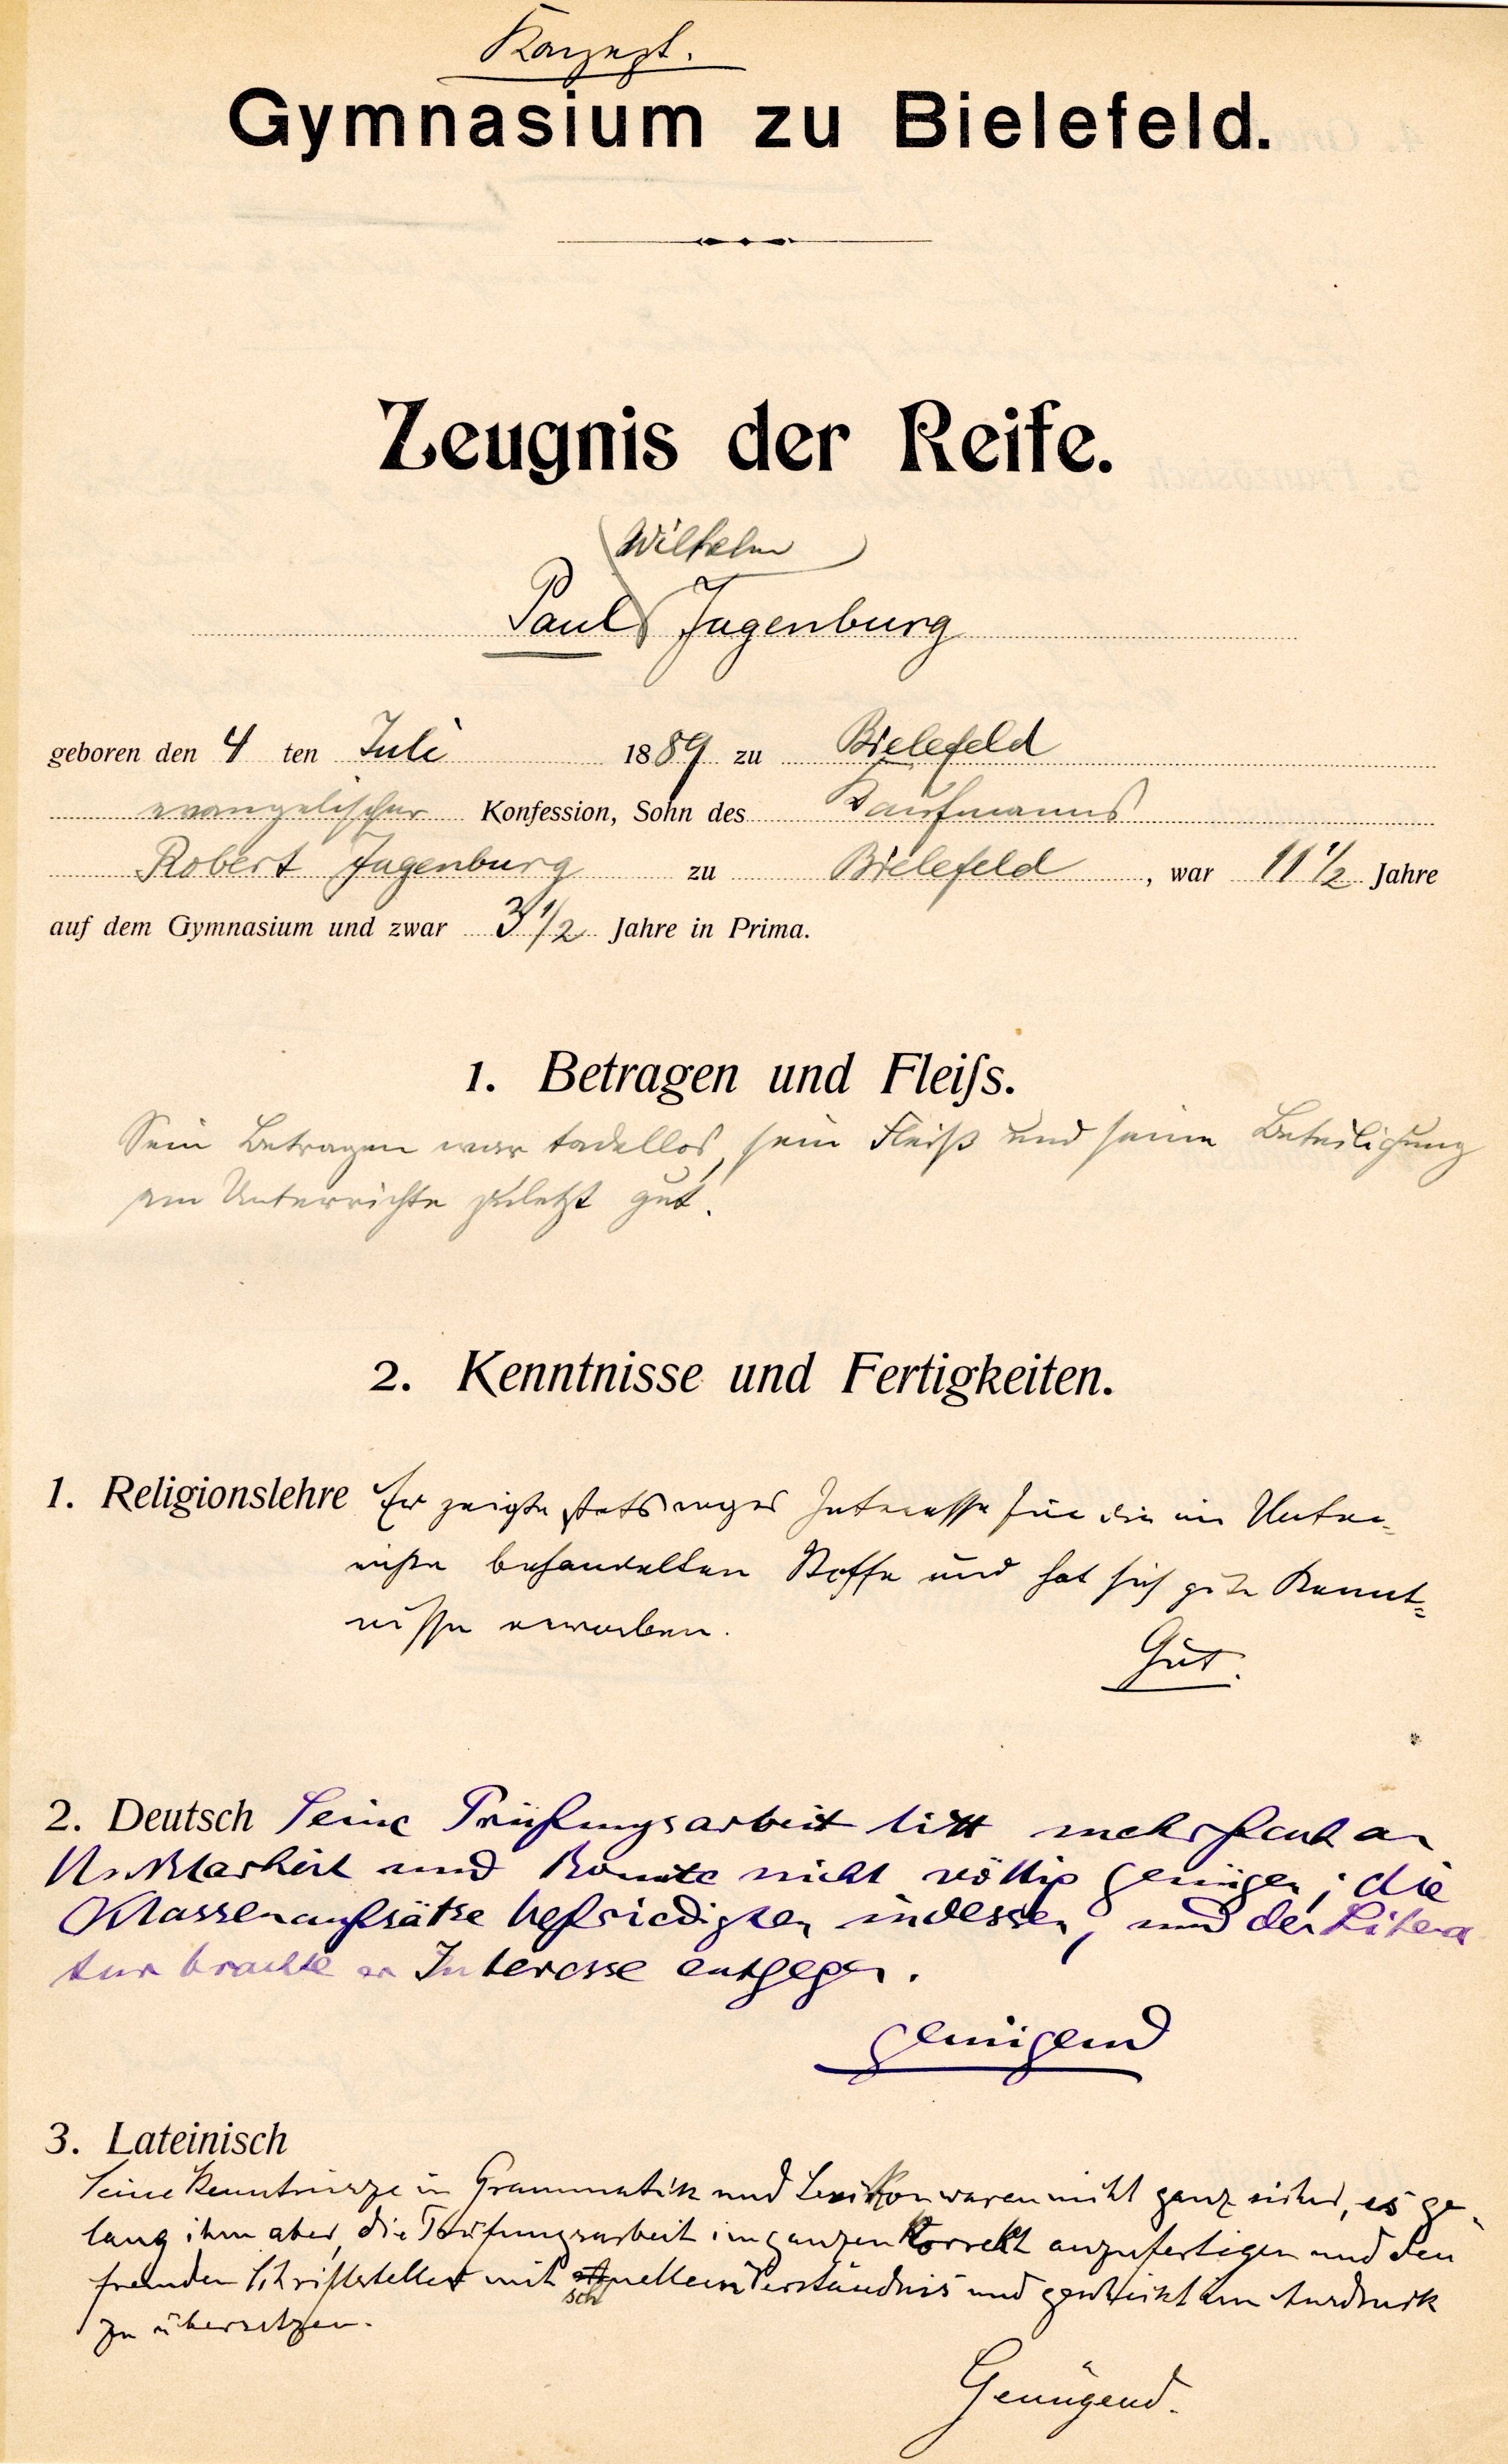 Konzept.
Gymnasium zu Bielefeld.
Zeugnis der Reife.
Wilhelm
Paul Jagenburg
geboren den 4 ten Juli 1889 zu Bielefeld
evangelischer Konfession, Sohn des Kaufmanns
Robert Jagenburg zu Bielefeld, war 11 1/2 Jahre
auf dem Gymnasium und zwar 3 1/2 Jahre in Prima.
1. Betragen und Fleiſs.
Sein Betragen war tadellos, sein Fleiß und seine Beteiligung
am Unterrichte zuletzt gut.
2. Kenntnisse und Fertigkeiten.
1. Religionslehre Er zeigte stets reges Interesse für die im Unter-
richte behandelten Stoffe und hat sich gute Kennt-
nisse erworben.
Gut.
2. Deutsch Seine Prüfungsarbeit litt mehrfach an
Unklarheit und konnte nicht völlig genügen; die
Klassenaufsätze befriedigten indessen, und der Litera
tur brachte er Interesse entgegen.
genügend
3. Lateinisch
Seine Kenntnisse in Grammatik und Lexikon waren nicht ganz sicher, es ge-
lang ihm aber, die Prüfungsarbeit im ganzen korrekt anzufertigen und den
fremden Schriftsteller mit schnellem Verständnis und geschickt im Ausdruck
zu übersetzen.
Genügend.